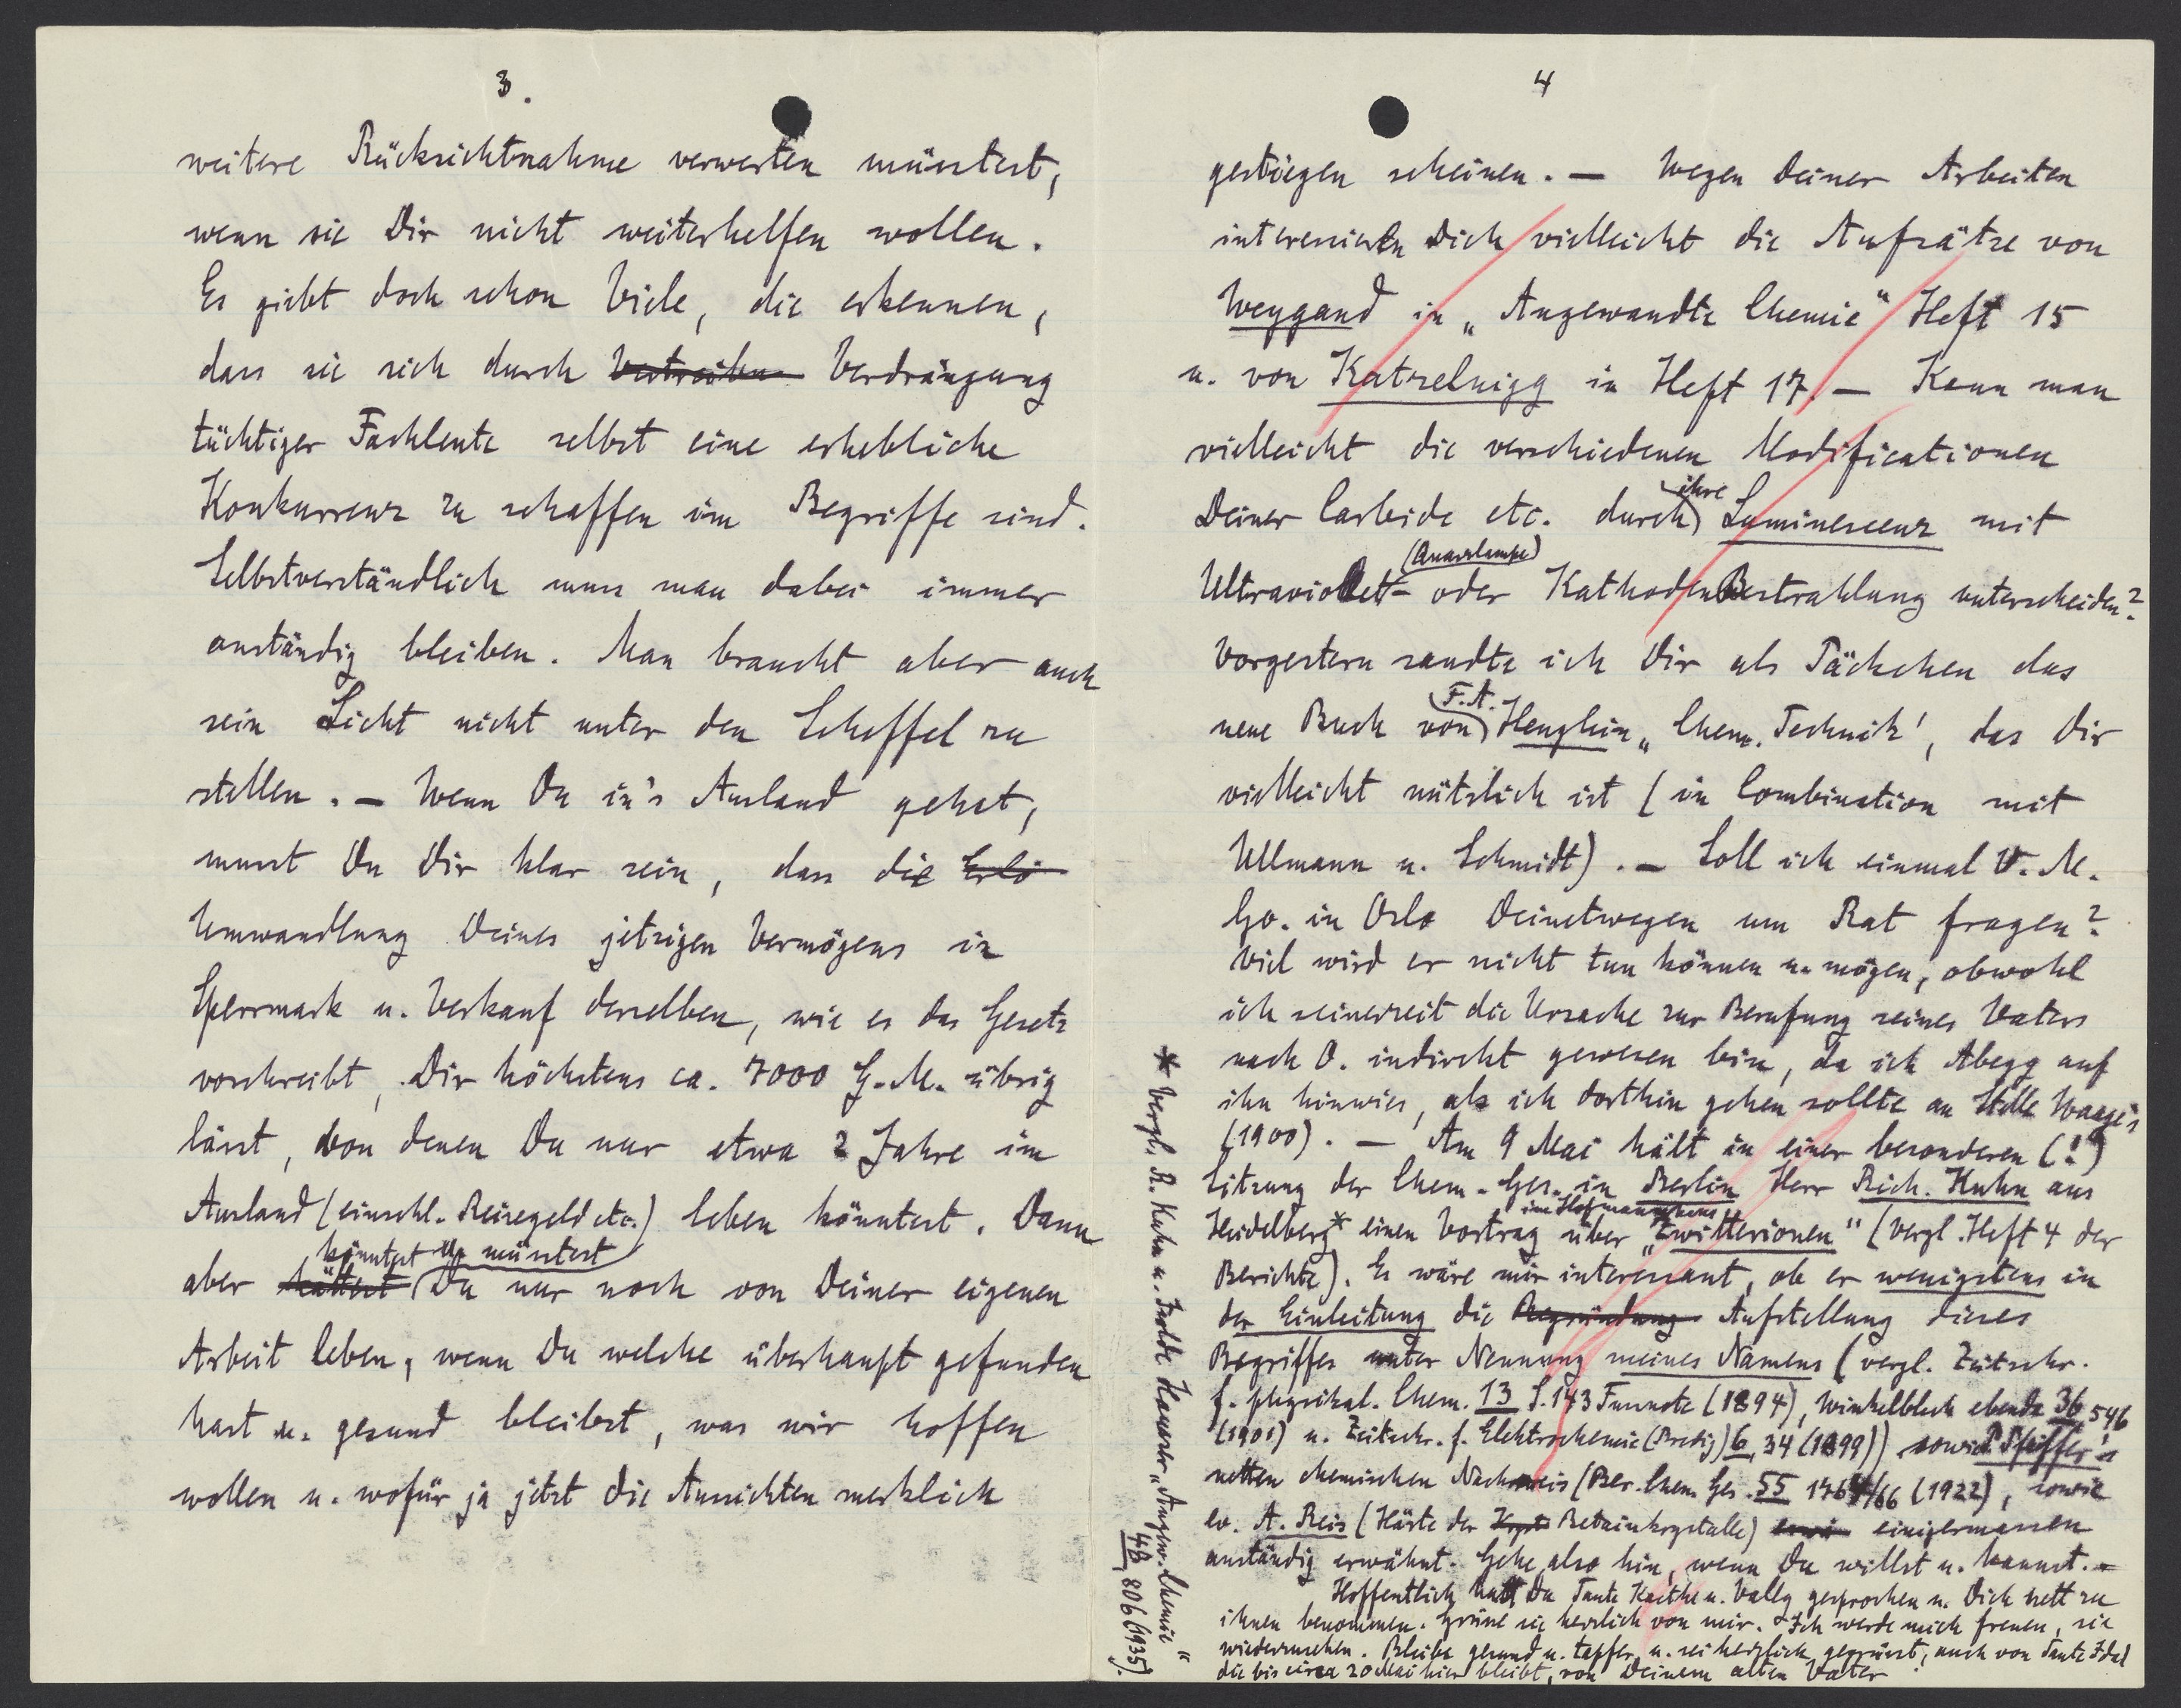 3.
weitere Rücksichtnahme verwerten müsstest,
wenn sie Dir nicht weiterhelfen wollen.
Es giebt doch schon Viele, die erkennen,
dass sie sich durch Vertreiben Verdrängung
tüchtiger Fachleute selbst eine erhebliche
Konkurrenz zu schaffen im Begriffe sind.
Selbstverständlich muss man dabei immer
anständig bleiben. Man braucht aber auch
sein Licht nicht unter den Scheffel zu
stellen. – Wenn Du in's Ausland gehst,
musst Du Dir klar sein, dass die Erlö
Umwandlung Deines jetzigen Vermögens in
Sperrmark u. Verkauf derselben, wie es das Gesetz
vorschreibt, Dir höchstens ca. 7000 G.-M. übrig
lässt, von denen Du nur etwa 2 Jahre im
Ausland (einschl. Reisegeld etc.) leben könntest. Dann
könntest u. müsstest
aber hättest Du nur noch von Deiner eigenen
Arbeit leben, wenn Du welche überhaupt gefunden
hast u. gesund bleibst, was wir hoffen
wollen u. wofür ja jetzt die Aussichten merklich
4
gestiegen scheinen. – Wegen Deiner Arbeiten
interessieren Dich vielleicht die Aufsätze von
Weygand in „Angewandte Chemie" Heft 15
u. von Katzelnigg in Heft 17. – Kann man
vielleicht die verschiedenen Modificationen
ihre
Deiner Carbide etc. durch Luminescenz mit
(Quarzlampe)
Ultraviolett- oder Kathoden Bestrahlung unterscheiden?
Vorgestern sandte ich Dir als Päckchen das
F.A.
neue Buch von Henglein „Chem. Technik', das Dir
vielleicht nützlich ist (in Combination mit
Ullmann u. Schmidt). – Soll ich einmal V. M.
Go. in Oslo Deinetwegen um Rat fragen?
Viel wird er nicht tun können u. mögen, obwohl
ich seinerzeit die Ursache zur Berufung seines Vaters
nach O. indirekt gewesen bin, da ich Abegg auf
ihn hinwies, als ich dorthin gehen sollte an Stelle Waage's
(1900). – Am 9 Mai hält in einer besonderen (!?)
Sitzung der Chem. Ges. in Berlin Herr Rich. Kuhn aus
im Hofmannhaus
Heidelberg* einen Vortrag über „Zwitterionen" (vergl. Heft 4 der
Berichte). Es wäre mir interessant, ob er wenigstens in
der Einleitung die Begründung Aufstellung dieses
Begriffes unter Nennung meines Namens (vergl. Zeitschr.
f. physikal. Chem. 13 S. 143 Fussnote (1894), Winkelblech ebenda 36, 546
(1901) u. Zeitschr. f. Elektrochemie (Bredig) 6, 34 (1899)) sowie P. Pfeiffer's
netten chemischen Nachweis (Ber. Chem. Ges. 55 1764/66 (1922), sowie
ev. A. Reis (Härte der Kryst Betainkrystalle) einigermassen
anständig erwähnt. Gehe also hin, wenn Du willst u. kannst. –
Hoffentlich hast Du Tante Kaethe u. Vally gesprochen u. Dich nett zu
ihnen benommen. Grüsse sie herzlich von mir. Ich werde mich freuen, sie
wiederzusehen. Bleibe gesund u. tapfer u. sei herzlich gegrüsst, auch von Tante Idel
die bis circa 20 Mai hier bleibt, von Deinem alten Vater
* Vergl. R. Kuhn u. Isolde Hausser „Angew. Chemie"
48, 806 (1935).